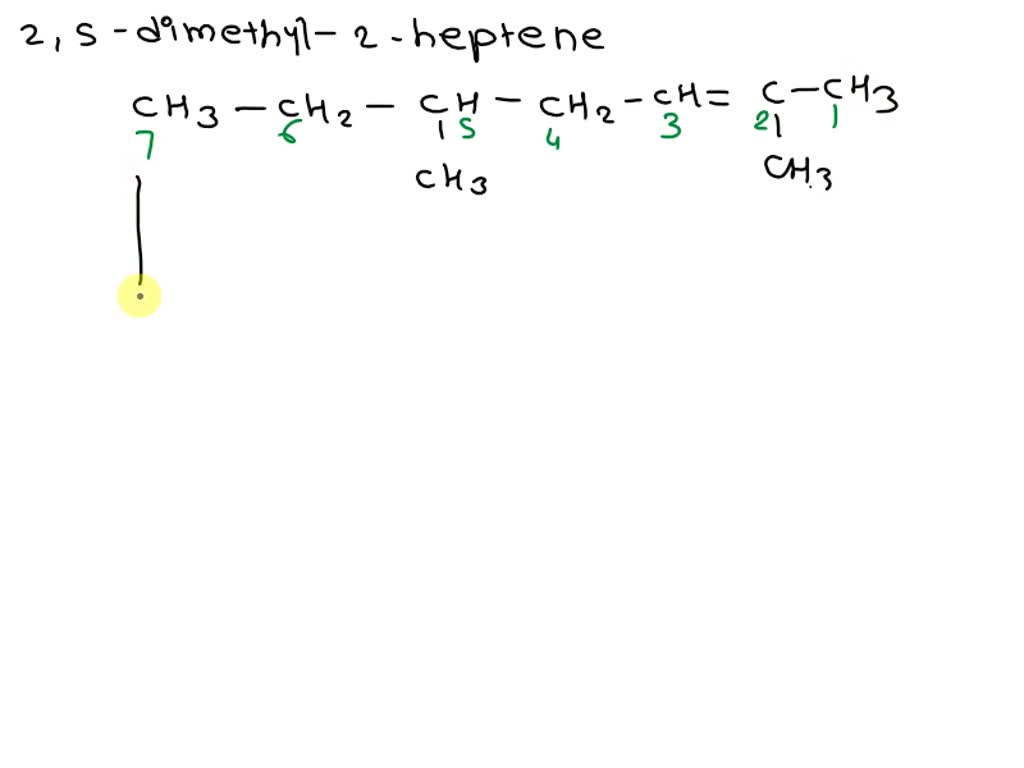 2,5-dimethyl-2-heptene
CH3-CH2-CH-CH2-CH=C-CH3
7 6 5 4 3 2 1
CH3 CH3